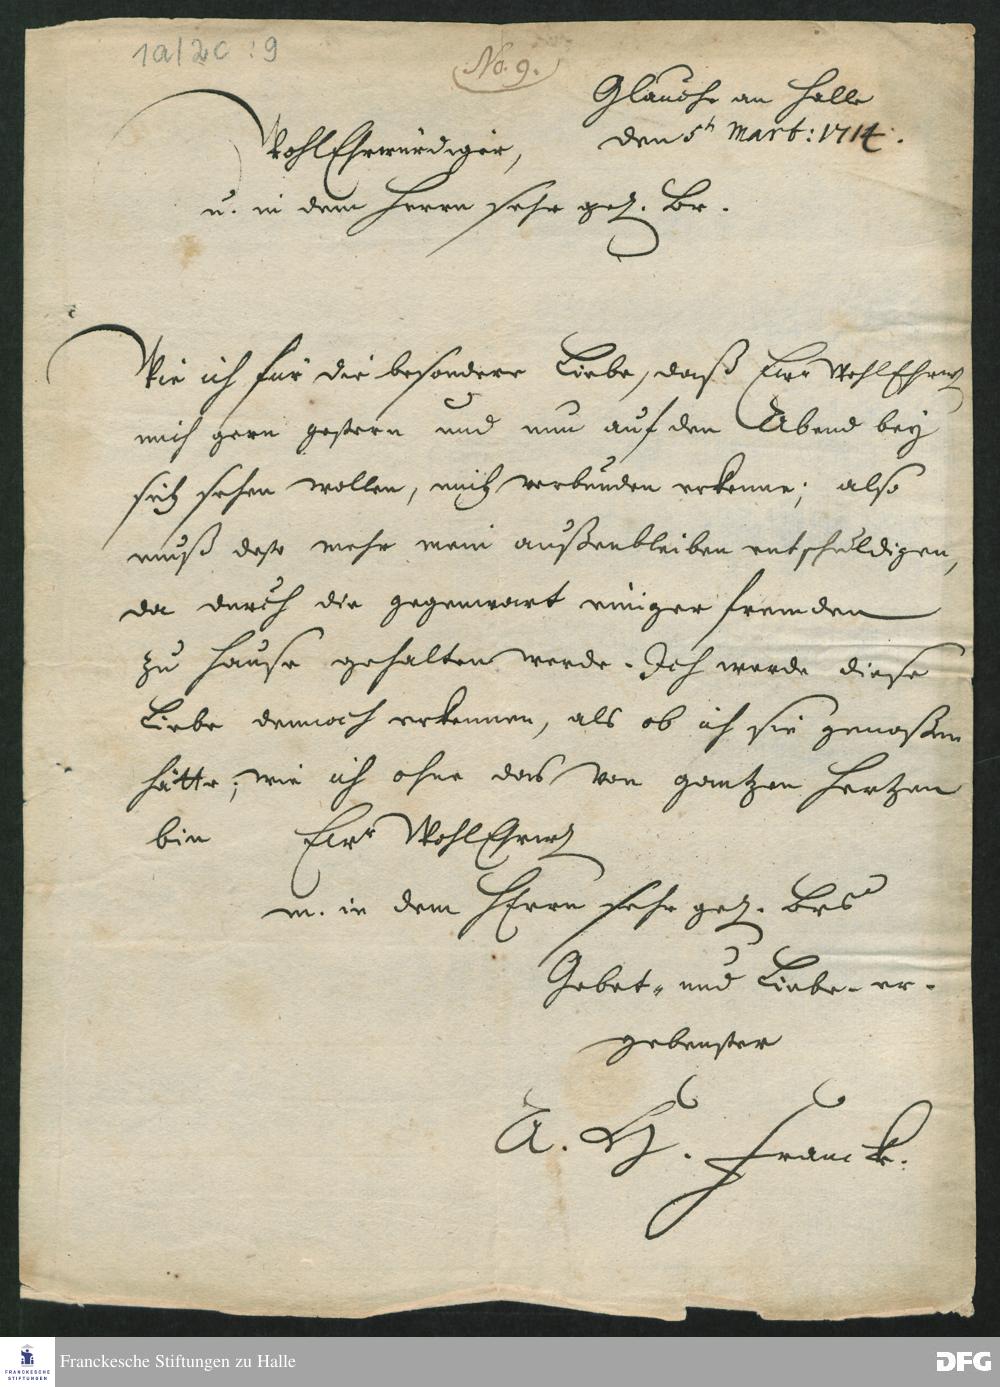 1a/2c : 9
No. 9.
Glaucha an Halle
den 5t Mart: 1714.
WohlEhrwürdiger,
u. in dem Herrn sehr gel. Br.
Wie ich für die besondere Liebe, daß Ewr WohlEhrw
mich gern gestern und nun auf den Abend bey
sich sehen wollen, mich verbunden erkenne; also
muß desto mehr mein außenbleiben entschuldigen,
da durch die gegenwart einiger fremden
zu Hause gehalten werde. Ich werde diese
Liebe dennoch erkennen, als ob ich sie genoßen
hätte; wie ich ohne das von gantzen Hertzen
bin Ewr WohlEhrw
m. in dem HErrn sehr gel. Brs
Gebet- und Liebe- er-
gebenster
A. H. Francke.
Franckesche Stiftungen zu Halle
FRANCKESCHE
STIFTUNGEN
DFG